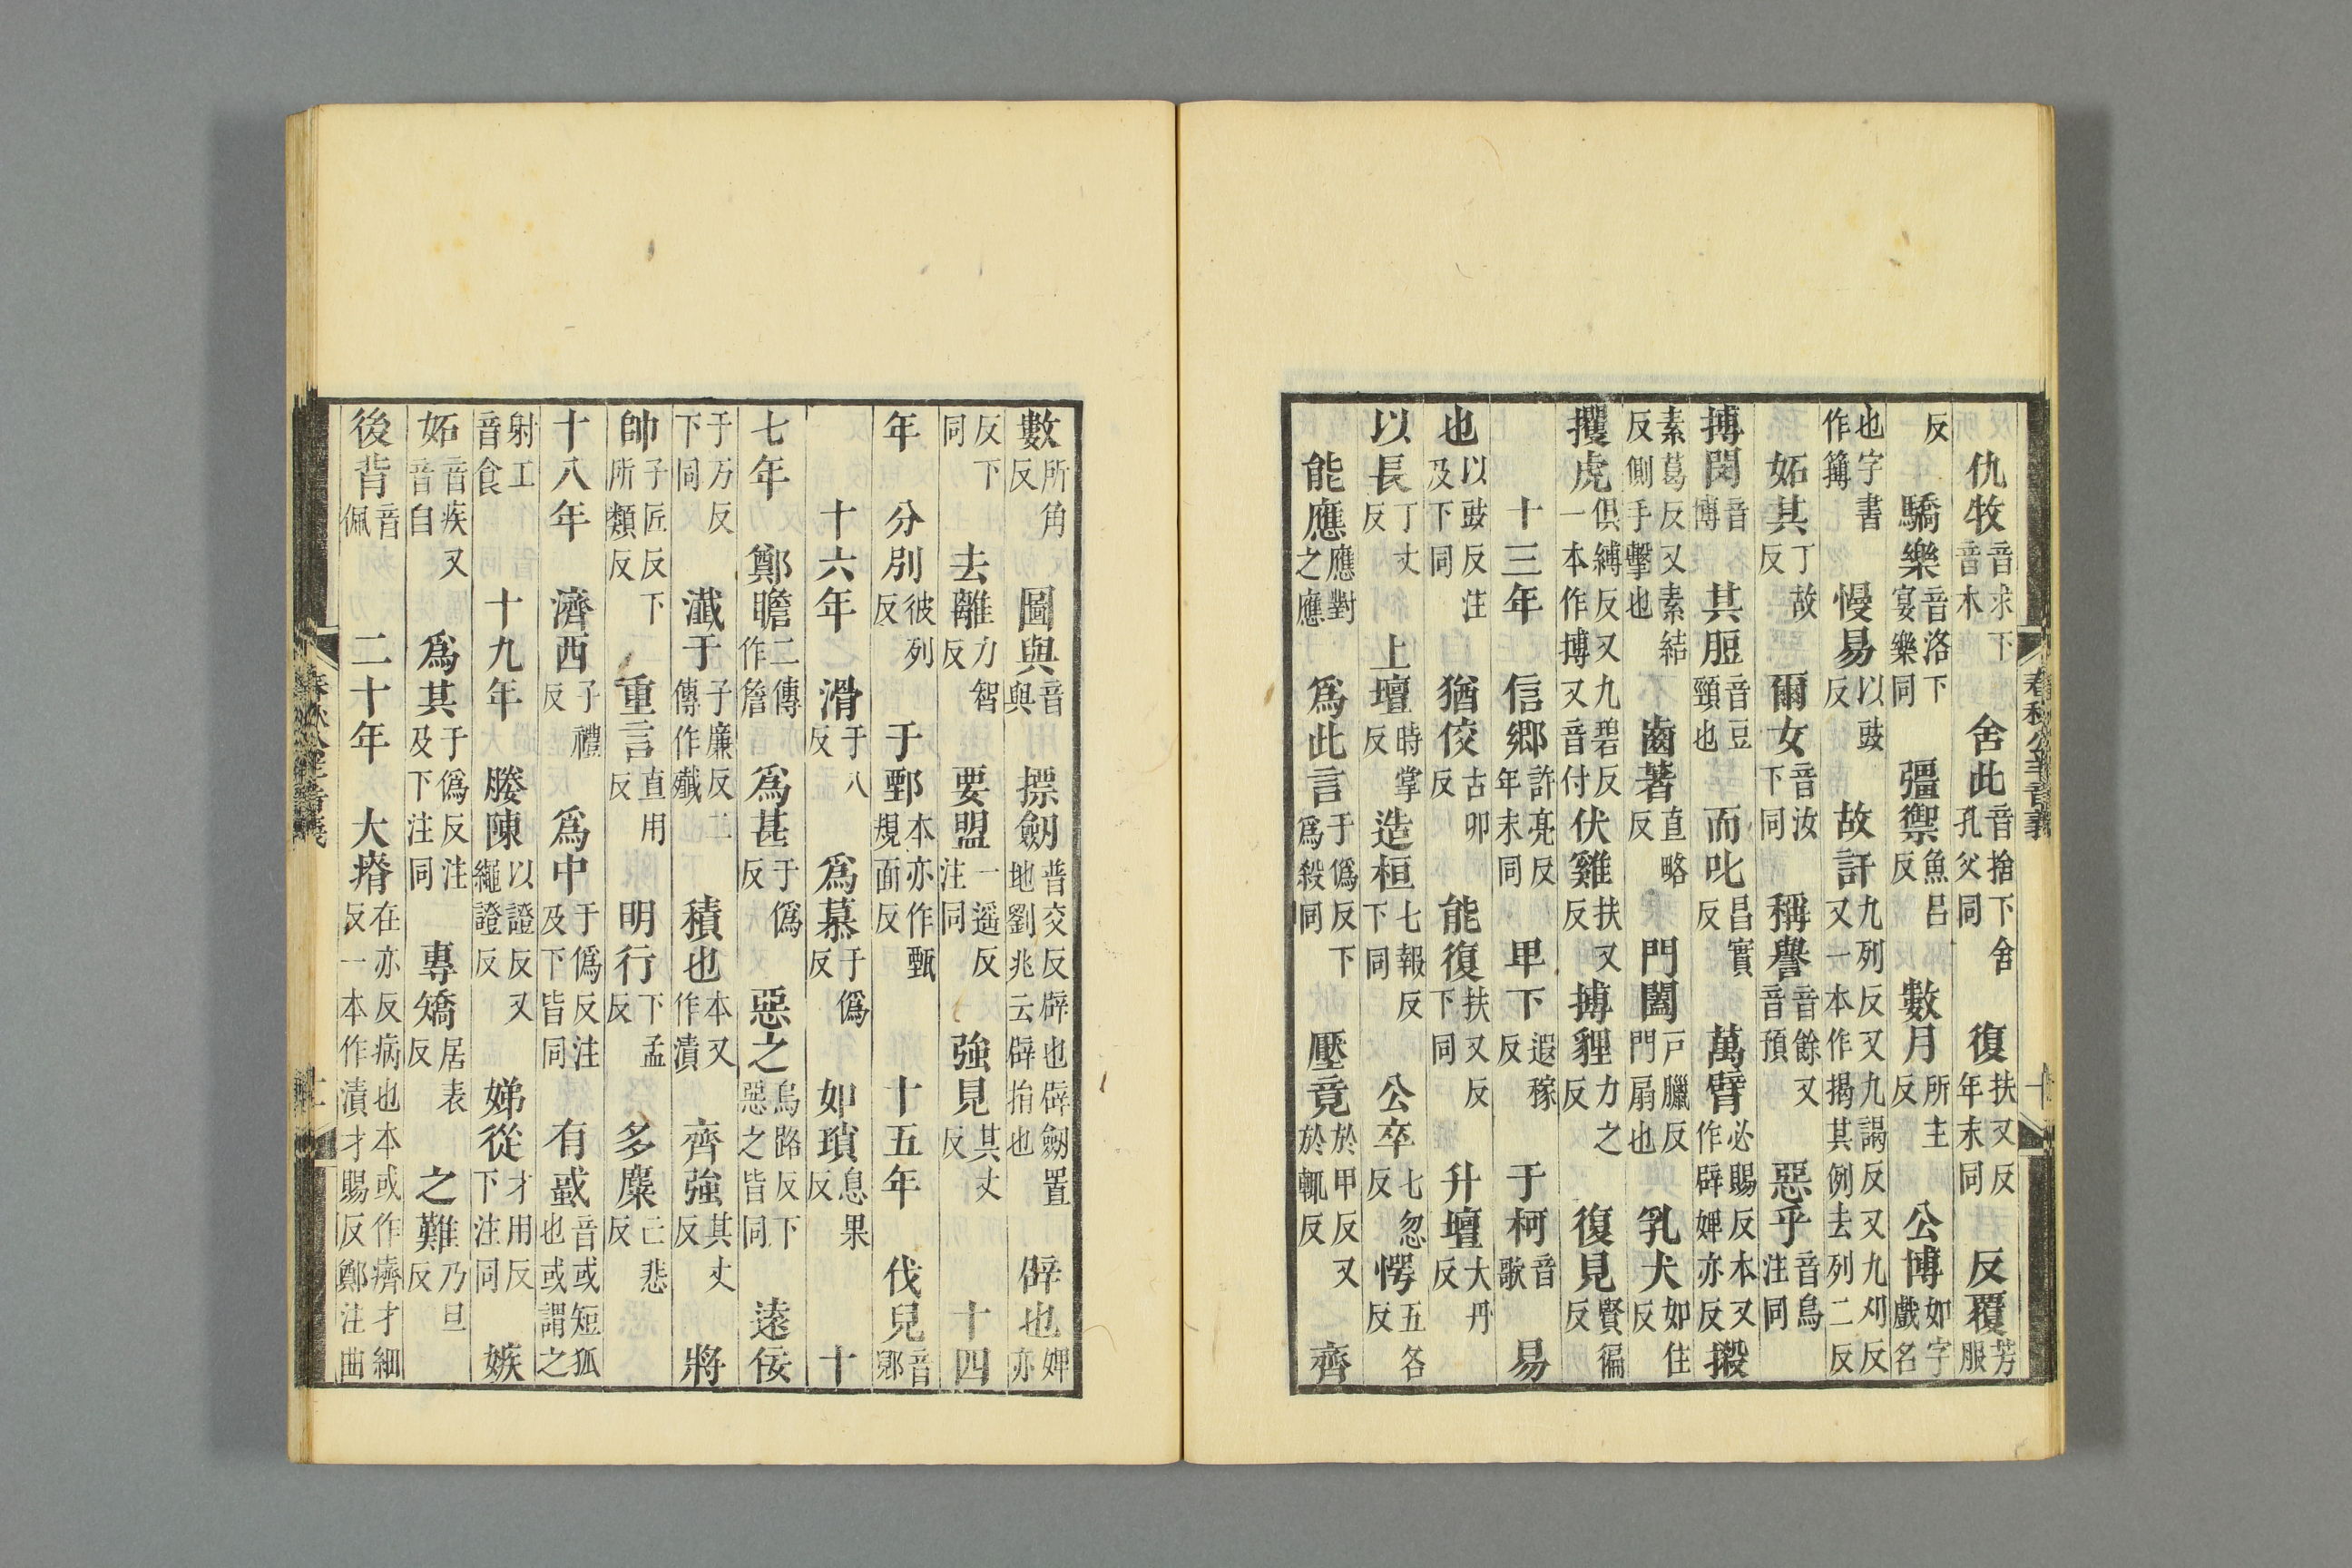 仇牧音求下音木 舍此音捨下舍孔父同 復扶又反年末同 反覆芳服
反 驕樂音洛下宴樂同 彊禦魚呂反 數月所主反 公博如字戲名
也字書作簙 慢易以豉反 故訐九列反又九謁反又九刈反又一本作揭其例去列二反
妬其丁故反 爾女音汝下同 稱譽音餘又音預 惡乎音烏注同
搏閔音博 其脰音豆頸也 而叱昌實反 萬臂必賜反本又作辟婢亦反 摋
素葛反又素結反側手擊也 齒著直略反 門闔戶臘反門扇也 乳犬如住反
攫虎俱縛反又九碧反一本作搏又音付 伏雞扶又反 搏貍力之反 復見賢徧反
十三年 信鄉許亮反年末同 甲下遐稼反 于柯音歌 易
也以豉反注及下同 猶佼古卯反 能復扶又反下同 升壇大丹反
以長丁丈反 上壇時掌反 造桓七報反下同 公卒七忽反 愕五各反
能應應對之應 爲此言于僞反下爲殺同 壓竟於甲反又於輒反 齊
春秋公羊音義 十
數所角反 圖與音與 摽劒普交反辟也辟劒置地劉兆云辟捐也 辟也婢亦
反下同 去離力智反 要盟一遥反注同 強見其丈反 十四
年 分別彼列反 于鄄本亦作甄規面反 十五年 伐兒音郳
十六年 滑于八反 爲慕于僞反 如瑣息果反 十
七年 鄭瞻二傳作詹 爲甚于僞反 惡之烏路反下惡之皆同 遠佞
于万反下同 瀸于子廉反二傳作殲 積也本又作漬 齊強其丈反 將
帥子匠反下所類反 重言直用反 明行下孟反 多麋亡悲反
十八年 濟西子禮反 爲中于僞反注及下皆同 有蜮音或短狐也或謂之
射工音食 十九年 媵陳以證反又繩證反 娣從才用反下注同 嫉
妬音疾又音自 爲其于僞反注及下注同 專矯居表反 之難乃旦反
後背音佩 二十年 大瘠在亦反病也本或作㾊才細反一本作漬才賜反鄭注曲